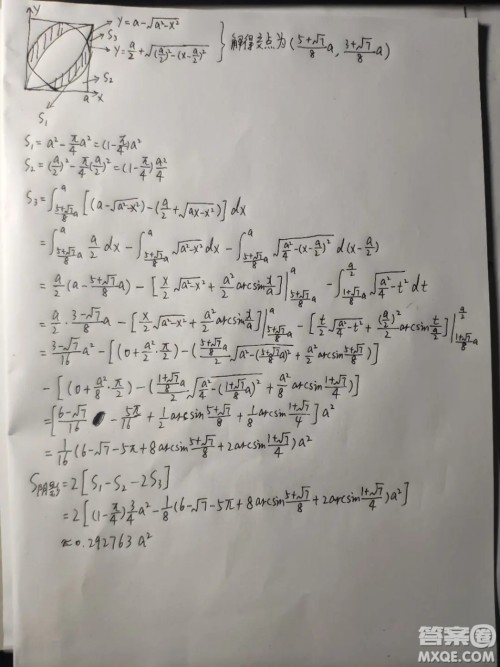 Y
Y=a-√(a²-x²)
S₃
Y=a/2+√((a/2)²-(x-a/2)²)
} 解得交点为 ((5+√7)/8 a, (3+√7)/8 a)
S₂
a x
S₁
S₁=a²-π/4 a²=(1-π/4)a²
S₂=(a/2)²-π/4(a/2)²=(1-π/4)a²/4
S₃=∫_{(5+√7)/8 a}^{a} [(a-√(a²-x²))-(a/2+√(ax-x²))]dx
=∫_{(5+√7)/8 a}^{a} a/2 dx-∫_{(5+√7)/8 a}^{a} √(a²-x²)dx-∫_{(5+√7)/8 a}^{a} √(a²/4-(x-a/2)²) d(x-a/2)
=a/2(a-(5+√7)/8 a)-[x/2 √(a²-x²)+a²/2 arcsin x/a]|_{(5+√7)/8 a}^{a}-∫_{(1+√7)/8 a}^{a/2} √(a²/4-t²)dt
=a/2·(3-√7)/8 a-[x/2 √(a²-x²)+a²/2 arcsin x/a]|_{(5+√7)/8 a}^{a}-[t/2 √(a²/4-t²)+(a/2)²/2 arcsin t/(a/2)]|_{(1+√7)/8 a}^{a/2}
=(3-√7)/16 a²-[(0+a²/2·π/2)-((5+√7)/8 a/2 √(a²-((5+√7)/8 a)²)+a²/2 arcsin (5+√7)/8)]
-[(0+a²/8·π/2)-((1+√7)/8 a/2 √(a²/4-((1+√7)/8 a)²)+a²/8 arcsin (1+√7)/4)]
=[(6-√7)/16 -5π/16+1/2 arcsin (5+√7)/8+1/8 arcsin (1+√7)/4]a²
=1/16(6-√7-5π+8arcsin (5+√7)/8+2arcsin (1+√7)/4)a²
S阴影=2[S₁-S₂-2S₃]
=2[(1-π/4)3/4 a²-1/8(6-√7-5π+8arcsin (5+√7)/8+2arcsin (1+√7)/4)a²]
≈0.292763a²
答案圈
MXQE.COM